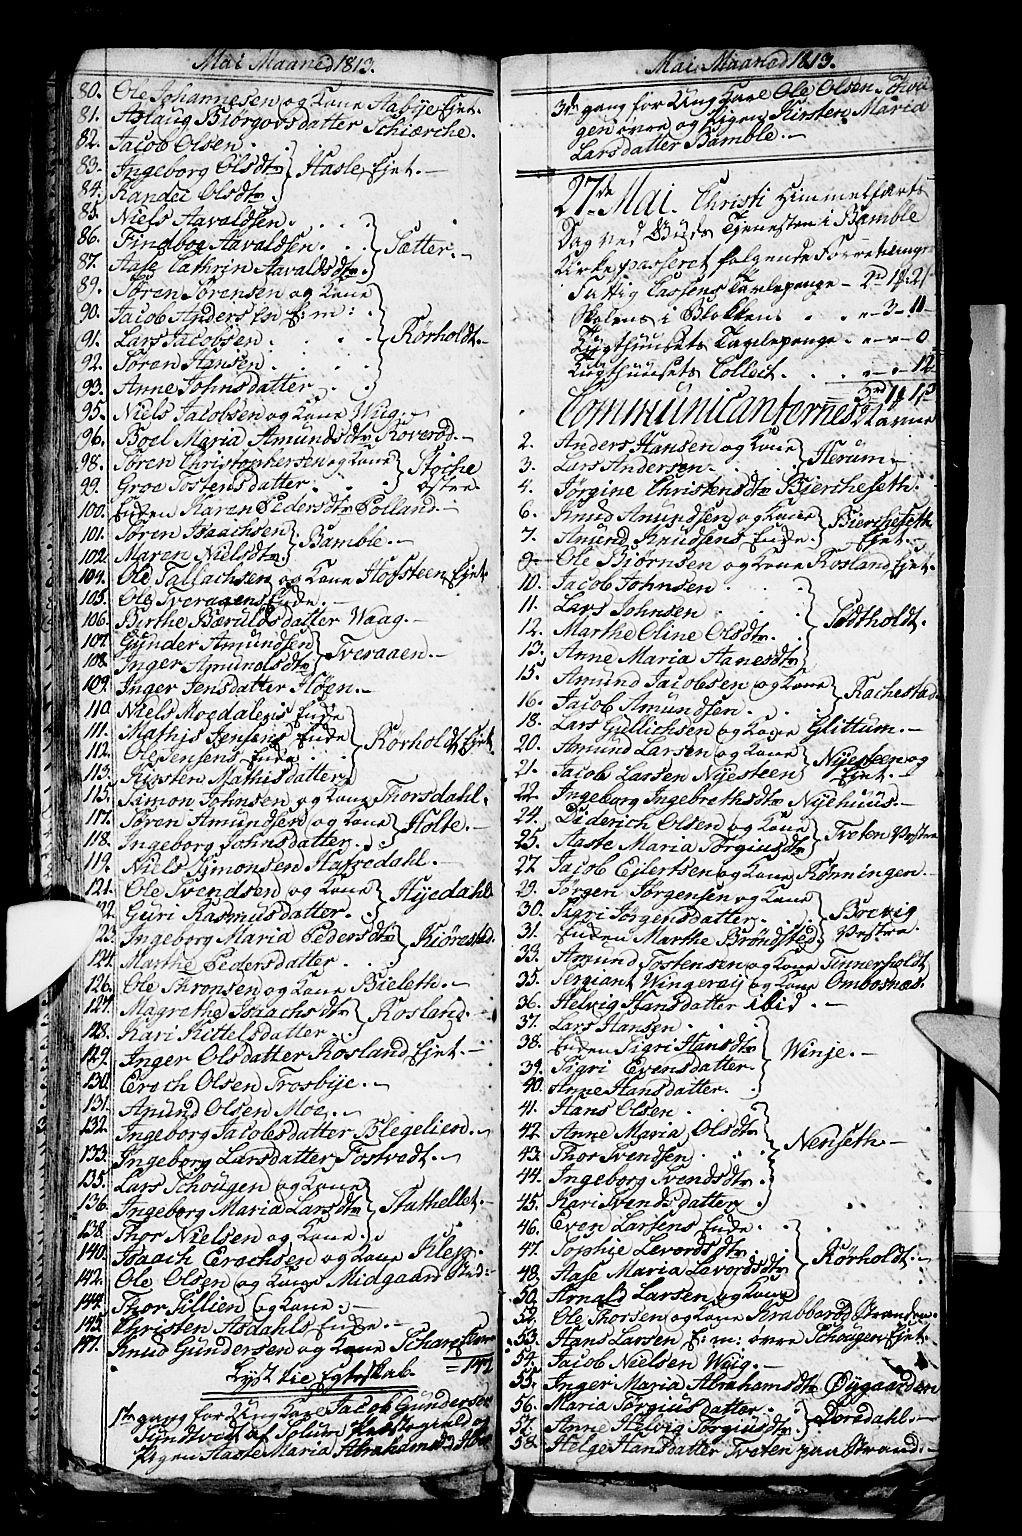 Mai Maaned 1813.
80. Ole Johannesen og Kone Aabye Ejet.
81. Aslaug Biørgovsdatter Schierche.
82. Jacob Olsen.
83. Ingeborg Olsdtr Hasle Ejet.
84. Randei Olsdtr
85. Niels Aavaldsen.
86. Findbog Aavaldsen. Satter.
87. Aase Cathrin Aavaldsdtr
89. Søren Sørensen og Kone
90. Jacob Andersen E:m:
91. Lars Jacobsen. Rørholdt.
92. Søren Hansen.
93. Anne Johnsdatter
95. Niels Jacobsen og Kone Waag.
96. Boel Maria Amundsdtr Roverød.
98. Søren Christophersen og Kone Stoche
99. Groe Tostensdatter. østre
100. Enken Maren Pedersdtr Polland.
101. Søren Isaachsen Bamble.
102. Maren Nielsdtr
104. Ole Tallachsen og Kone Hofsteen Ejet.
105. Ole Tveraaens Enke.
106. Birthe Bærulsdatter Waag.
107. Gunder Amundsen
108. Inger Amundsdtr Tveraaen.
109. Inger Jensdatter Fløen.
110. Niels Moedalens Enke
111. Mathis Jensens Enke Rørholdt Ejet
112. Ole Jensens Enke
113. Kirsten Mathisdatter
115. Simon Johnsen og Kone Thorsdahl.
117. Søren Amundsen og Kone Holte.
118. Ingeborg Johnsdatter.
119. Niels Simonsen Hafredahl.
121. Ole Svendsen og Kone Hyedahl
122. Guri Rasmusdatter.
123. Ingeborg Maria Pedersdtr Kiørestad.
124. Marthe Pedersdatter.
126. Ole Thronsen og Kone Bieleth.
127. Magrethe Isaachsdtr Rosland.
128. Kari Kittelsdatter
129. Inger Olsdatter Rosland Ejet.
130. Erach Olsen Trosbye.
131. Amund Olsen Moe.
132. Ingeborg Jacobsdatter Blegelien.
133. Ingeborg Larsdatter Fostvedt.
135. Lars Schougen og Kone
136. Ingeborg Maria Larsdtr Stathellet.
138. Thor Nielsen og Kone.
140. Isaach Erachsen og Kone Klep.
142. Ole Olsen og Kone Midgaard
144. Thor Lillien og Kone
145. Christen Asdahls Enke.
147. Knud Gundersen og Kone
= 147
Lyst til Egteskab.
1te gang for Ung Karl Jacob Gundersen
Sundvig af Solum Præstegield og
Pigen Aaste Maria Abrahamsdtr
Mai Maaned 1813.
3de gang for Ung Karl Ole Olsen Schou
gen øvre og Pigen Kirsten Maria
Larsdatter Bamble.
27de Mai. Christi Himmelfarts
Dag ved Guds Tjenesten i Bamble
Kirke passeret følgende Forretninger
Fattig Cassens Tavlepenge 2rd 1 21
Skolens i Blokken 3 11
Tugthuusets Tavlepenge 0
Tugthuusets Collect. 12
Communicanternes Navne
2. Anders Hansen og Kone Herum.
3. Lars Andersen.
4. Jørgine Christensdtr Bierchesæth.
6. Knud Amundsen og Kone Bierchesæth
7. Amund Knudsens Enke. Ejet.
9. Ole Biørnsen og Kone Rosland Ejet.
10. Jacob Johnsen
11. Lars Johnsen
12. Marthe Oline Olsdtr. Sødtholdt.
13. Anne Maria Hanesdtr
15. Amund Jacobsen og Kone Rachestad
16. Jacob Amundsen.
18. Lars Gullichsen og Kone Glittum.
20. Amund Larsen og Kone Nyesteen og
21. Jacob Larsen Nyesteen Ejet.
22. Ingeborg Ingebrethsdtr Nyehuus.
24. Diderich Olsen og Kone Tveten Vestre
25. Aaste Maria Jørgiusdtr
27. Jacob Ejlertsen og Kone Rønningen.
29. Jørgen Jørgensen og Kone
30. Sigri Jørgensdatter. Brevig
31. Enken Marthe Brøndsted Vestre.
33. Amund Tostensen og Kone Tinnerholdt
35. Sergiant Wingeraij og Kone Ombosnæs.
36. Helvig Hansdatter ibid.
37. Lars Hansen.
38. Enken Sigri Hansdtr Winje.
39. Sigri Evensdatter.
40. Anne Hansdatter.
41. Hans Olsen.
42. Anne Maria Olsdtr
43. Thor Svendsen. Nenseth.
44. Ingeborg Svendsdtr
45. Kari Svendsdatter
46. Even Larsens Enke.
47. Sophie Levordsdtr. Rørholdt.
48. Aase Maria Lavordsdtr
50. Arnald Larsen og Kone
52. Ole Thorsen og Kone Krabberød Stranden
53. Hans Larsen E:m: øvre Schougen Ejet.
54. Jacob Nielsen Waag.
55. Inger Maria Abrahamsdtr Øygaarden
56. Maria Jørgiusdatter. Dordahl.
57. Anne Helvig Jørgiusdtr
58. Helge Hansdatter Tveten paa Strand.